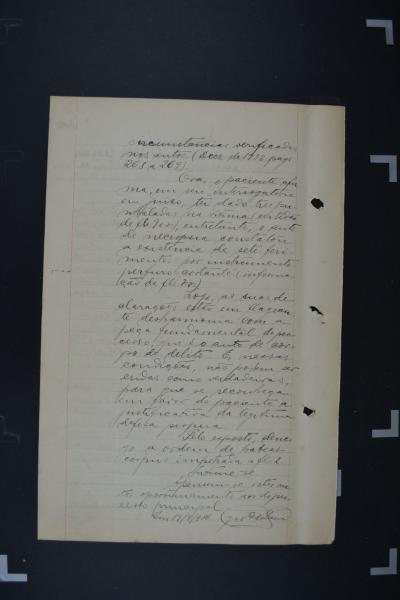 circumstancias verificadas
nos autos (Decs. de 1938 pags
268 a 269)
Ora, o paciente afir
ma, em seu interrogatorio
em juizo, ter dado tres pu
nhaladas na victima (certidão
de fls), entretanto, o auto
de necropsia constatou
a existencia de sete feri
mentos por instrumento
perfuro cortante (informa
ção de fls)
Logo, as suas de
clarações estão em flagran
te desharmonia com a
peça fundamental do pro
cesso, que é o auto de cor
po de delito e, nessas
condições, não podem ser
tidas como verdadeiras,
para que se reconheça
em favor do paciente a
justificativa da legitima
defesa propria
Pelo exposto, dene
go a ordem de habeas-
corpus impetrada a fls 2
Intime-se
Apensem-se estes au
tos opportunamente aos do pro
cesso principal
Em